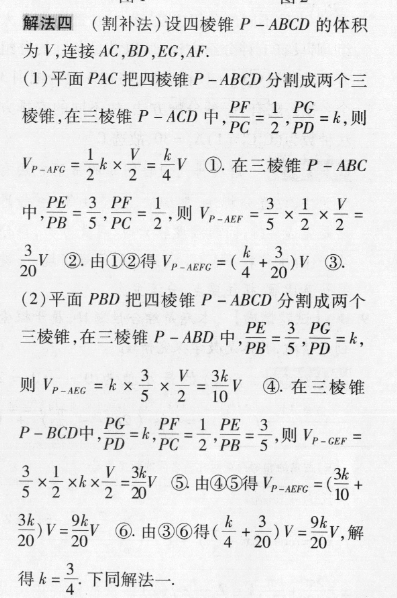 解法四 (割补法)设四棱锥 P-ABCD 的体积
为 V,连接 AC,BD,EG,AF.
(1)平面 PAC 把四棱锥 P-ABCD 分割成两个三
棱锥,在三棱锥 P-ACD 中,PF/PC=1/2,PG/PD=k,则
V_{P-AFG}=1/2k×V/2=k/4V ①. 在三棱锥 P-ABC
中,PE/PB=3/5,PF/PC=1/2,则 V_{P-AEF}=3/5×1/2×V/2=
3/20V ②. 由①②得 V_{P-AEFG}=(k/4+3/20)V ③.
(2)平面 PBD 把四棱锥 P-ABCD 分割成两个
三棱锥,在三棱锥 P-ABD 中,PE/PB=3/5,PG/PD=k,
则 V_{P-AEG}=k×3/5×V/2=3k/10V ④. 在三棱锥
P-BCD中,PG/PD=k,PF/PC=1/2,PE/PB=3/5,则 V_{P-GEF}=
3/5×1/2×k×V/2=3k/20V ⑤. 由④⑤得 V_{P-AEFG}=(3k/10+
3k/20)V=9k/20V ⑥. 由③⑥得(k/4+3/20)V=9k/20V,解
得 k=3/4. 下同解法一.